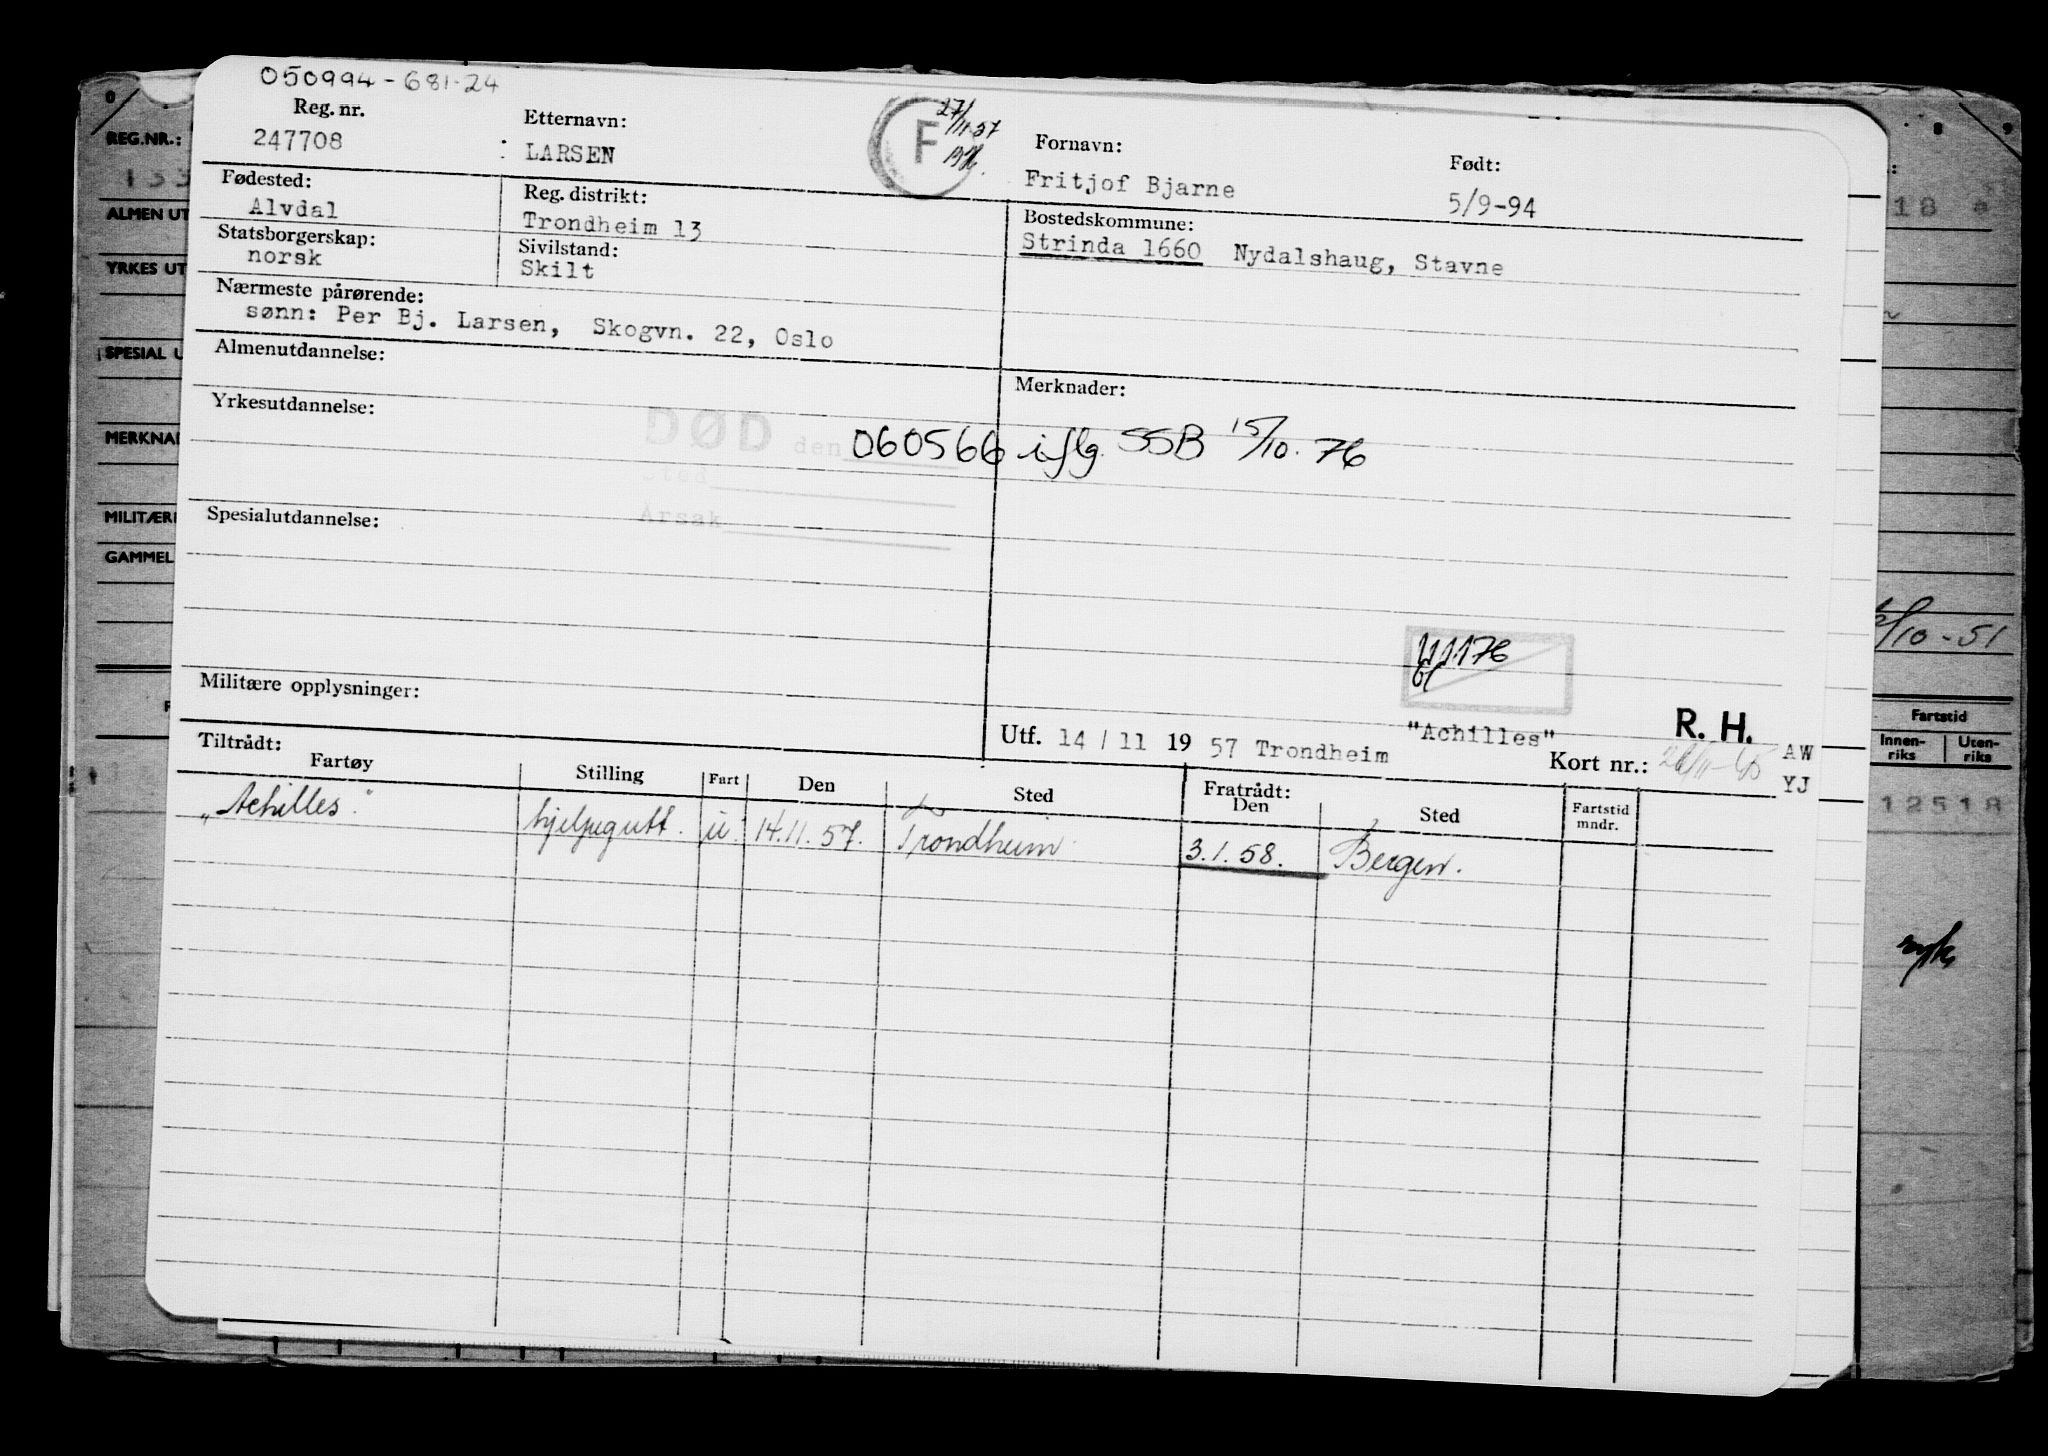 050994-681-24
Reg. nr. 247708
Etternavn: LARSEN
F 27/11-57
Fornavn: Fritjof Bjarne
Født: 5/9-94
Fødested: Alvdal
Reg. distrikt: Trondheim 13
Bostedskommune: Strinda 1660 Nydalshaug, Stavne
Statsborgerskap: norsk
Sivilstand: Skilt
Nærmeste pårørende:
sønn: Per Bj. Larsen, Skogvn. 22, Oslo
Almenutdannelse:
Merknader:
Yrkesutdannelse:
DØD den 060566 iflg. SSB 15/10. 76
Sted
Årsak
Spesialutdannelse:
Militære opplysninger:
"Achilles"
R. H.
Utf. 14 / 11 19 57 Trondheim
Kort nr.:
AW
YJ
Tiltrådt:
Fartøy Stilling Fart Den Sted Fratrådt: Den Sted Fartstid mndr.
"Achilles". hjelpegutt. u. 14.11.57. Trondheim 3.1.58. Bergen.
REG.NR.:
ALMEN UT
YRKES UT
SPESIAL U
MERKNAD
MILITÆRE
GAMMEL
/10-51
Fartstid
Innen-riks Uten-riks
12518